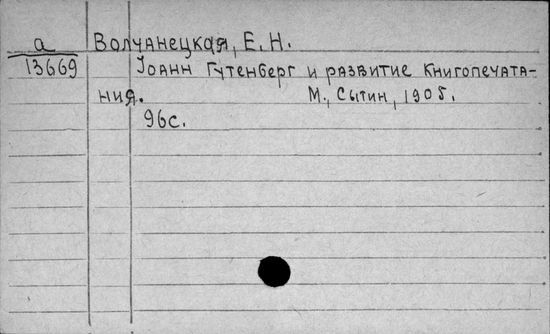 а Волчанецкая, Е. Н.
13669 Iоанн Гутенберг и развитие книгопечата-
ния. М., Сытин, 1905.
96с.